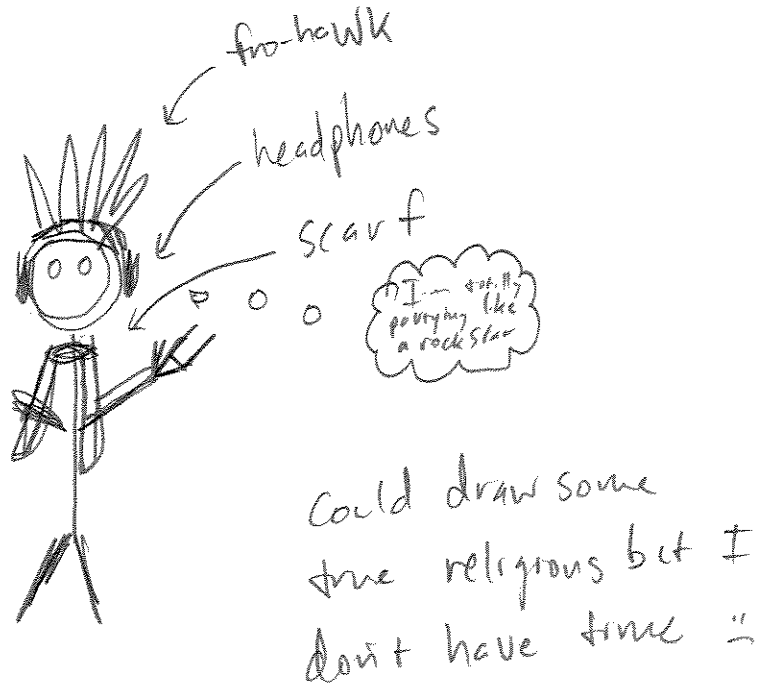 fro-hawk
headphones
scarf
"I totally
partying like
a rockstar
Could draw some
true religions but I
don't have time